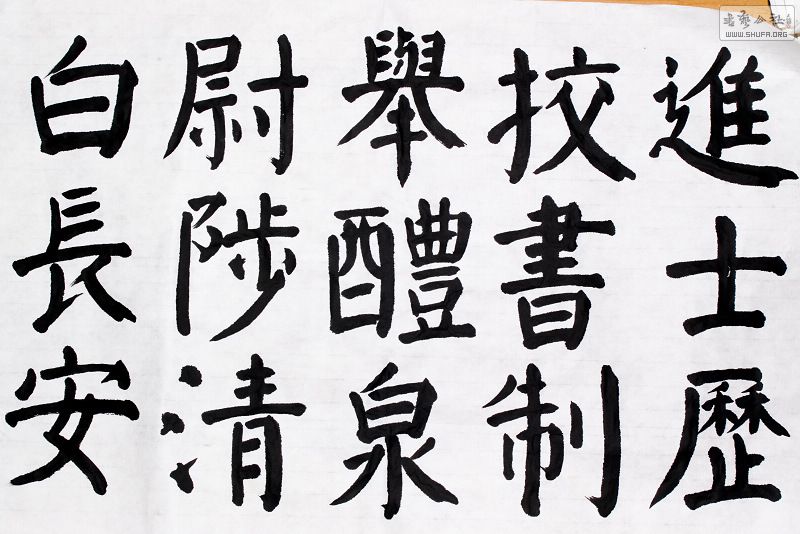 進士歷
挍書制
舉醴泉
尉陟清
白長安
书艺公社
WWW.SHUFA.ORG